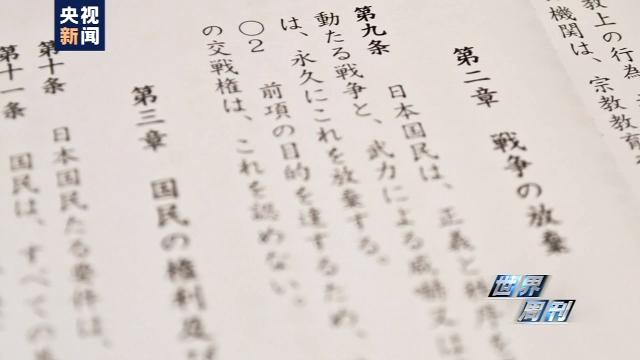 央视
新闻
教上の行為、
機関は、宗教教育
第二章　戦争の放棄
第九条　日本国民は、正義と秩序を
動たる戦争と、武力による威嚇又は
は、永久にこれを放棄する。
○2　前項の目的を達するため、
の交戦権は、これを認めない。
第三章　国民の権利及び
第十条　日本国民たる要件は、
第十一条　国民は、すべての
世界
周刊